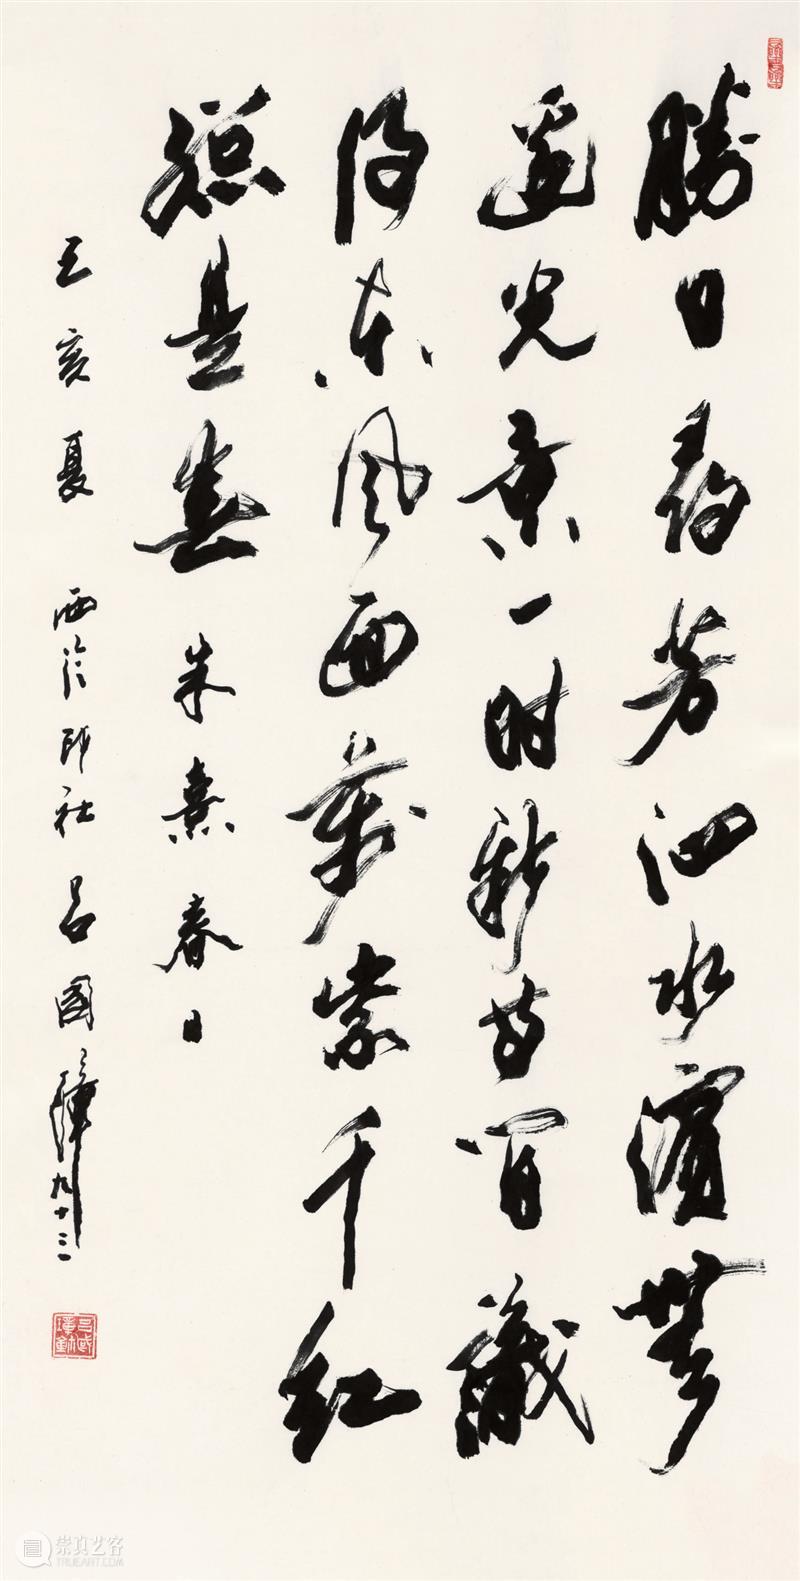 勝日尋芳泗水濱無
邊光景一時新等閒識
得東風面萬紫千紅
總是春 朱熹春日
壬寅夏 西泠印社 吕國璋九十三
崇真艺客
TRUEART.COM